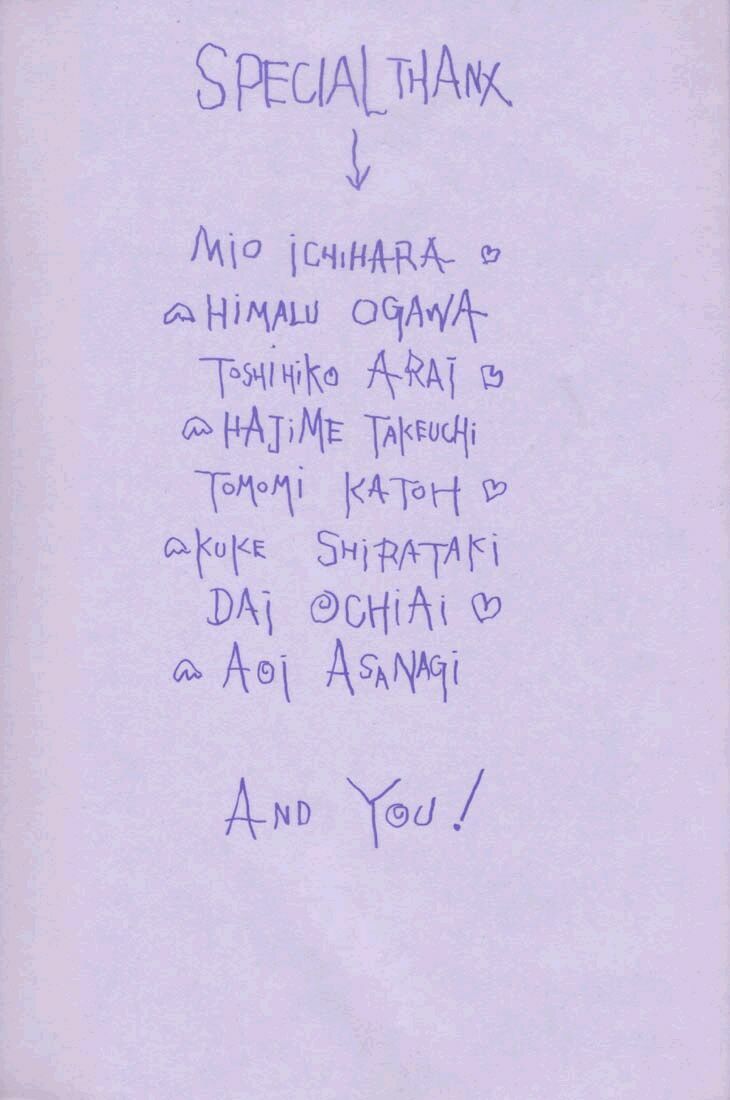 SPECIAL THANX
↓
MiO iCHiHARA ♡
HiMALU OGAWA
TOSHIHiKO ARAi ♡
HAJiME TAKEUCHi
TOMOMi KATOH ♡
KUKE SHiRATAKi
DAi OCHiAi ♡
AOi ASANAGi
AND YOU!